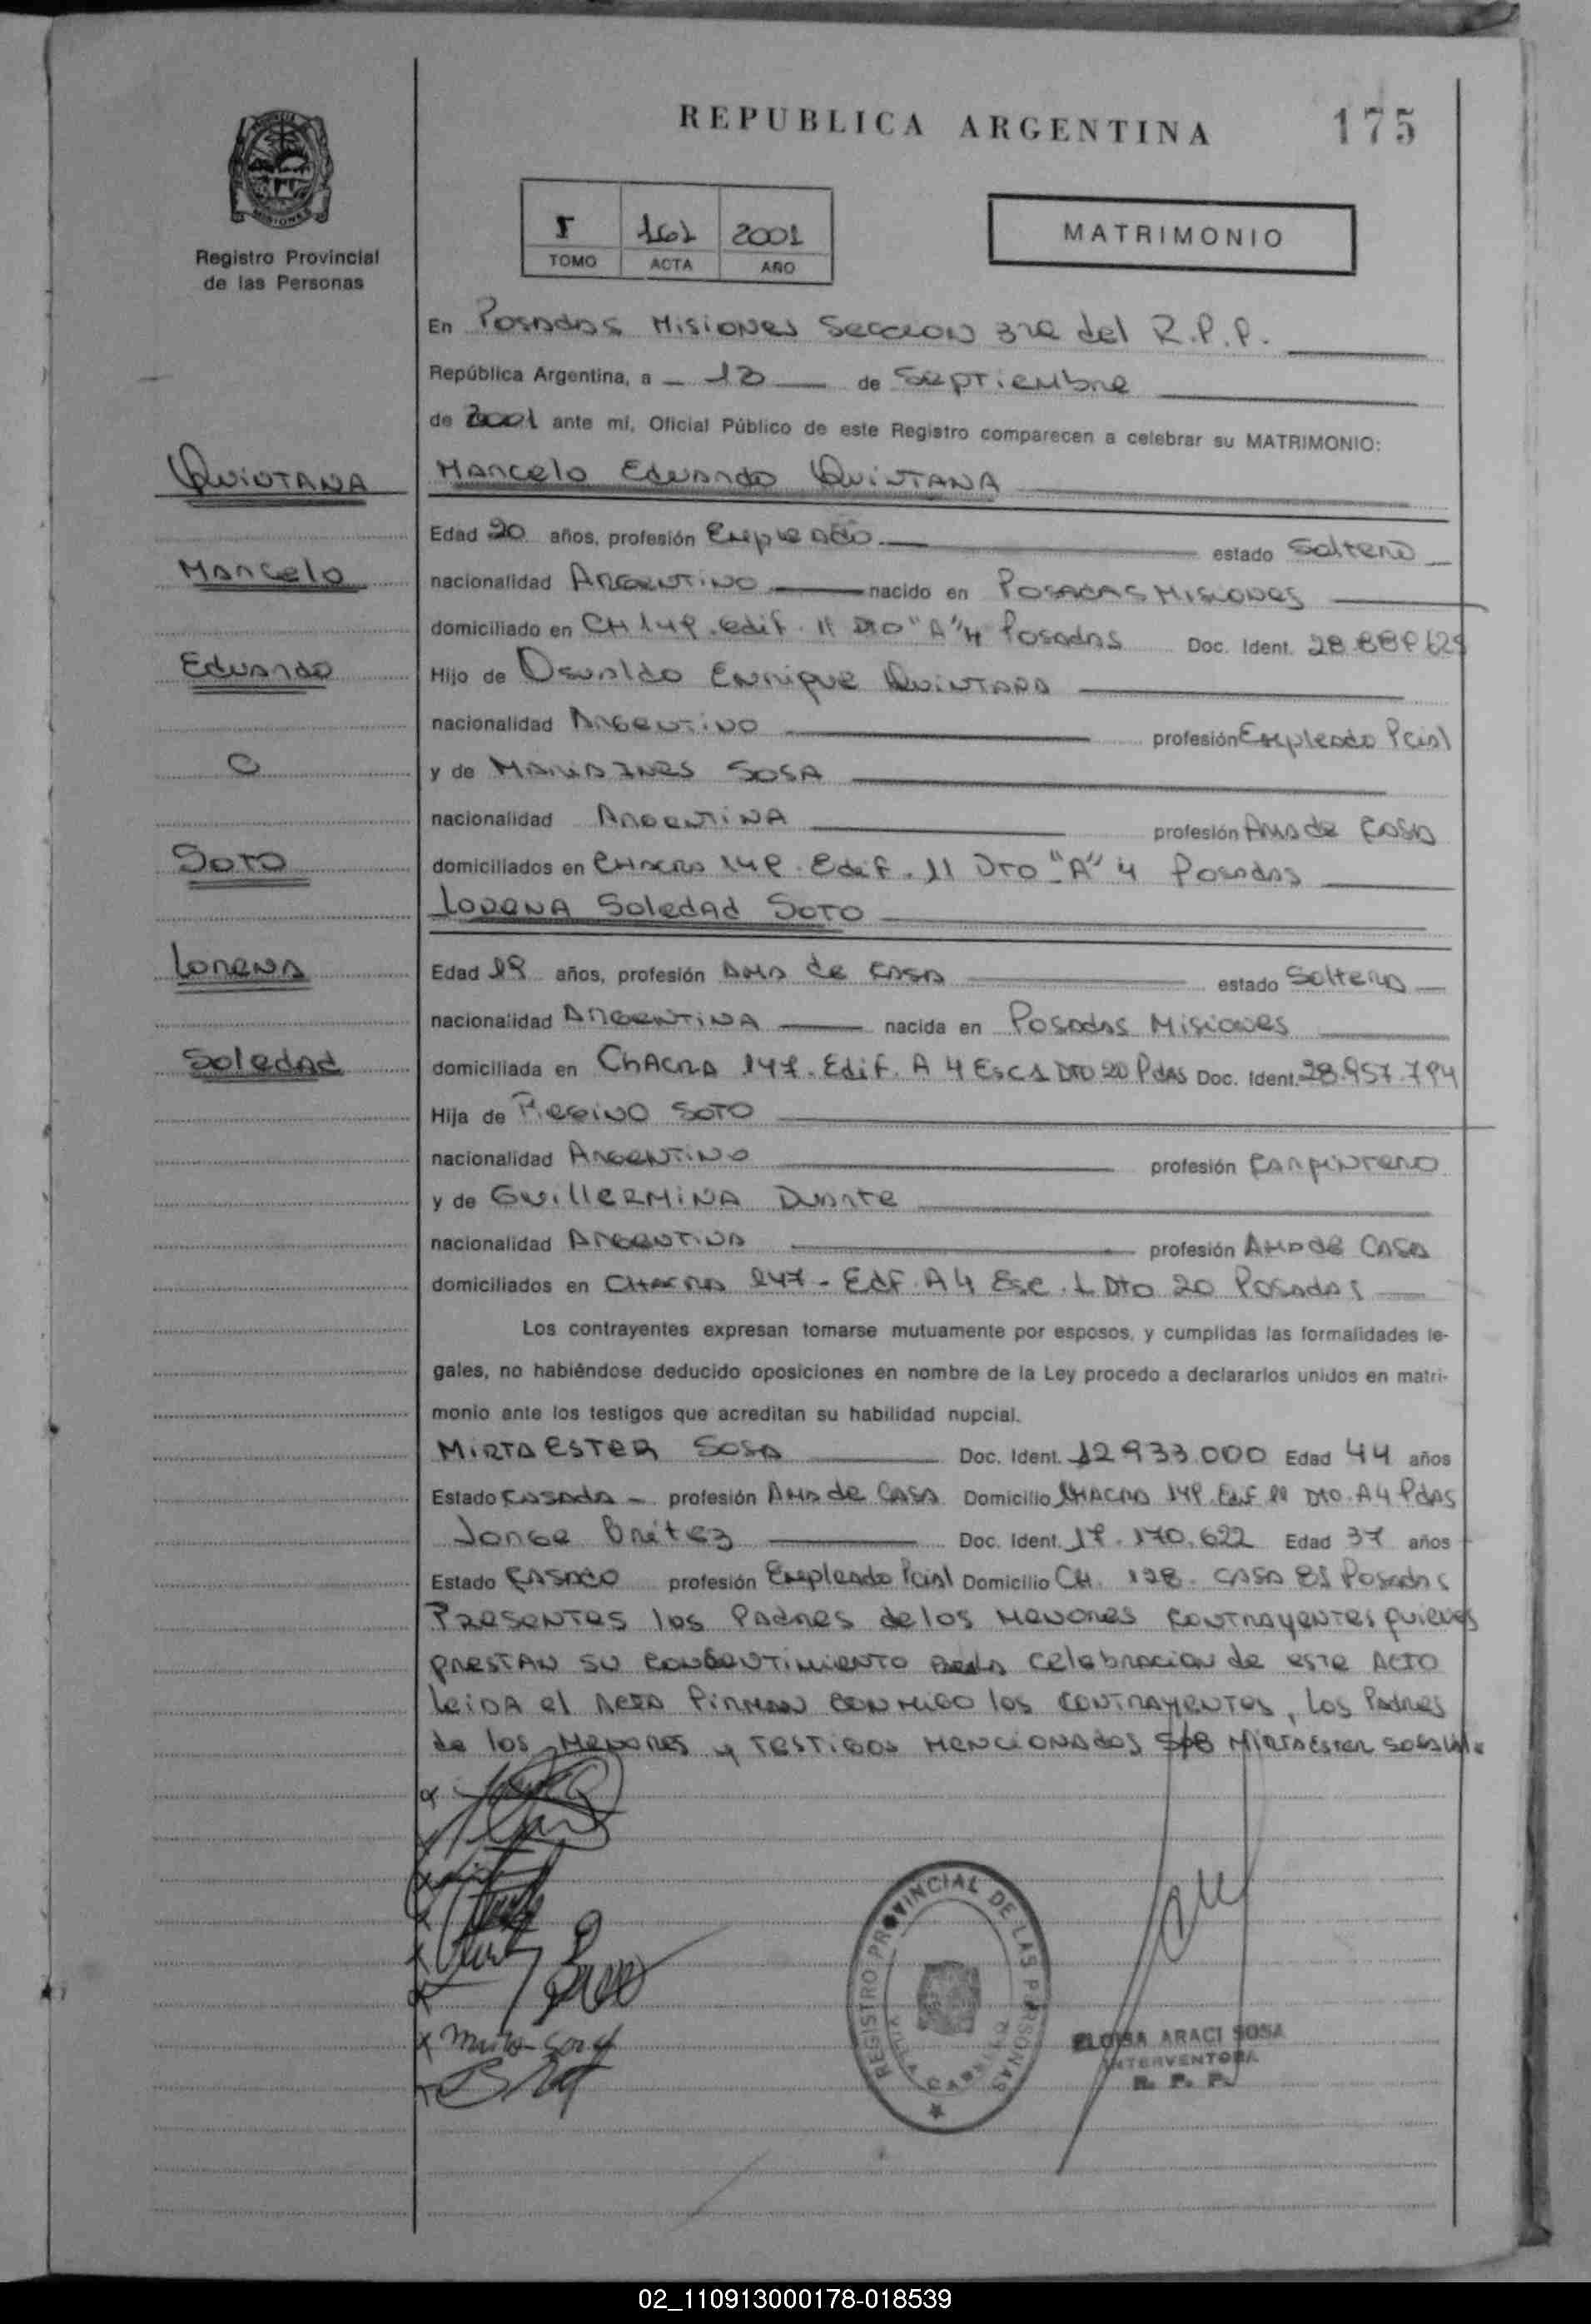 REPUBLICA ARGENTINA
175
MISIONES
Registro Provincial
de las Personas
161 2001
TOMO ACTA AÑO
MATRIMONIO
En Posadas Misiones Seccion 3ra del R.P.P.
República Argentina, a 13 de Septiembre
de 2001 ante mí, Oficial Público de este Registro comparecen a celebrar su MATRIMONIO:
QUINTANA
Marcelo Eduardo QUINTANA
Edad 20 años, profesión Empleado estado Soltero
Marcelo
nacionalidad Argentino nacido en Posadas Misiones
domiciliado en CH 149. edif. 11 Dto "A" 4 Posadas Doc. Ident.
Eduardo
Hijo de Osvaldo Enrique Quintana
nacionalidad Argentino profesión Empleado Pcial
C
y de Maria Ines SOSA
nacionalidad Argentina profesión Ama de Casa
SOTO
domiciliados en Chacra 149. Edif. 11 Dto "A" 4 Posadas
LORENA Soledad SOTO
Lorena
Edad 19 años, profesión Ama de Casa estado Soltera
nacionalidad Argentina nacida en Posadas Misiones
Soledad
domiciliada en Chacra 147. Edif. A 4 Esc 1 Dto 20 Pdas Doc. Ident. 28.957.794
Hija de Regino SOTO
nacionalidad Argentino profesión Carpintero
y de Guillermina Duarte
nacionalidad Argentina profesión Ama de Casa
domiciliados en Chacra 147 - Edf. A 4 Esc. 1 Dto 20 Posadas
Los contrayentes expresan tomarse mutuamente por esposos, y cumplidas las formalidades le-
gales, no habiéndose deducido oposiciones en nombre de la Ley procedo a declararlos unidos en matri-
monio ante los testigos que acreditan su habilidad nupcial.
MIRTA ESTER SOSA Doc. Ident. 12.933.000 Edad 44 años
Estado Casada profesión Ama de Casa Domicilio Chacra 149. Edif 11 Dto. A 4 Pdas
Jorge Britez Doc. Ident. 17.170.622 Edad 37 años
Estado Casado profesión Empleado Pcial Domicilio CH. 128. Casa 81 Posadas
Presentes los Padres de los Menores contrayentes quienes
prestan su consentimiento celebracion de este Acto
Leida el Acta Firman conmigo los contrayentes, los Padres
de los Menores y testigos mencionados S/B Mirta Ester Sosa Vale
REGISTRO PROVINCIAL DE LAS PERSONAS
ELOISA ARACI SOSA
INTERVENTORA
R. P. P.
02_110913000178-018539